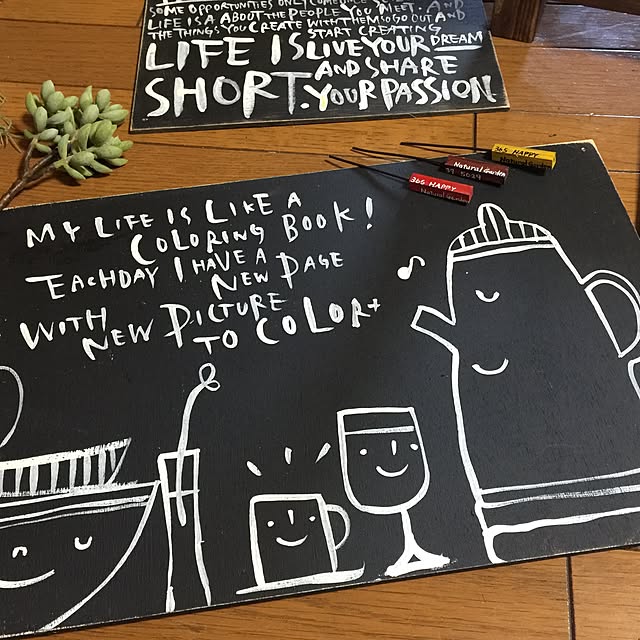 SOME OPPORTUNITIES ONLY COME
LIFE IS A ABOUT THE PEOPLE YOU MEET. AND
THE THINGS YOU CREATE WITH THEM SO GO OUT AND
START CREATING
LIFE IS LIVE YOUR DREAM
AND SHARE
SHORT. YOUR PASSION
365 HAPPY
Natural Garden
Natural Garden
365 HAPPY
Natural Garden
MY LIFE IS LIKE A
COLORING BOOK!
EACHDAY I HAVE A
NEW PAGE
WITH
NEW PICTURE
TO COLOR